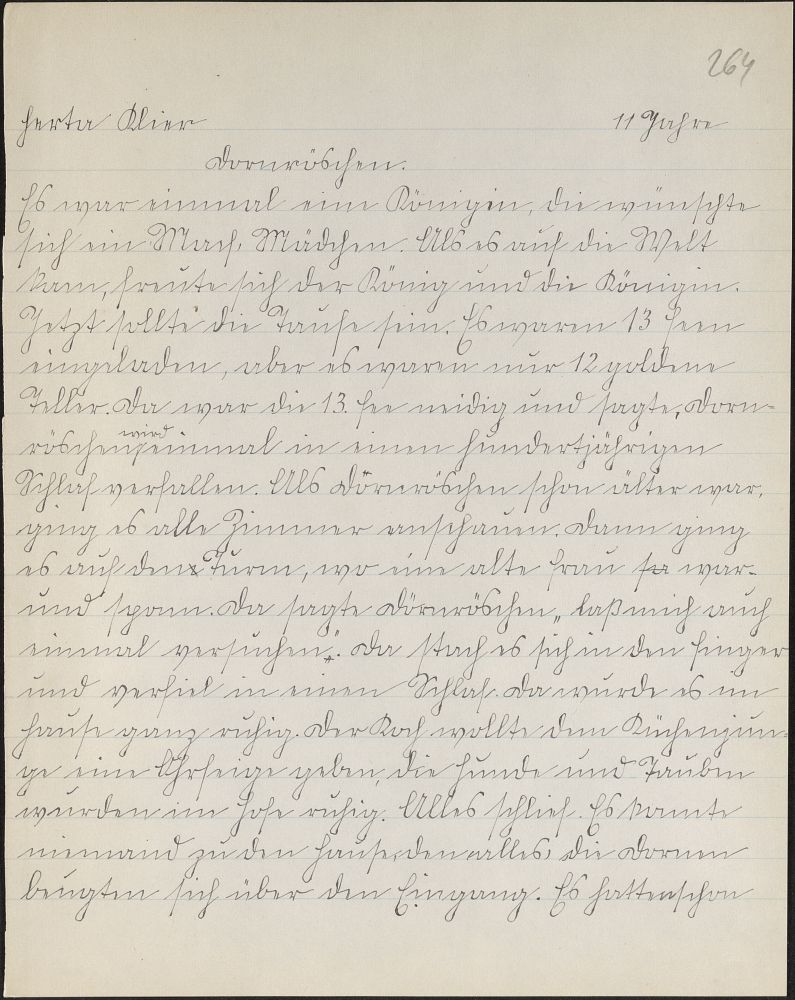 264
Herta Klier 11 Jahre
Dornröschen.
Es war einmal eine Königin, die wünschte
sich ein Mach, Mädchen. Als es auf die Welt
kam, freute sich der König und die Königin.
Jetzt sollte die Taufe sein. Es waren 13 Feen
eingeladen, aber es waren nur 12 goldene
Teller. Da war die 13. Fee neidig und sagte, Dorn-
röschen wird einmal in einen hundertjährigen
Schlaf verfallen. Als Dörnröschen schon älter war,
ging es alle Zimmer anschauen. Dann ging
es auf den Turm, wo eine alte Frau war
und spann. Da sagte Dörnröschen „laß mich auch
einmal versuchen“. Da stach es sich in den Finger
und verfiel in einen Schlaf. Da wurde es im
Hause ganz ruhig. Der Koch wollte dem Küchenjun-
ge eine Ohrfeige geben, die Hunde und Tauben
wurden im Hofe ruhig. Alles schlief. Es konnte
niemand zu den Hause, den alles, die Dornen
beugten sich über den Eingang. Es hatten schon